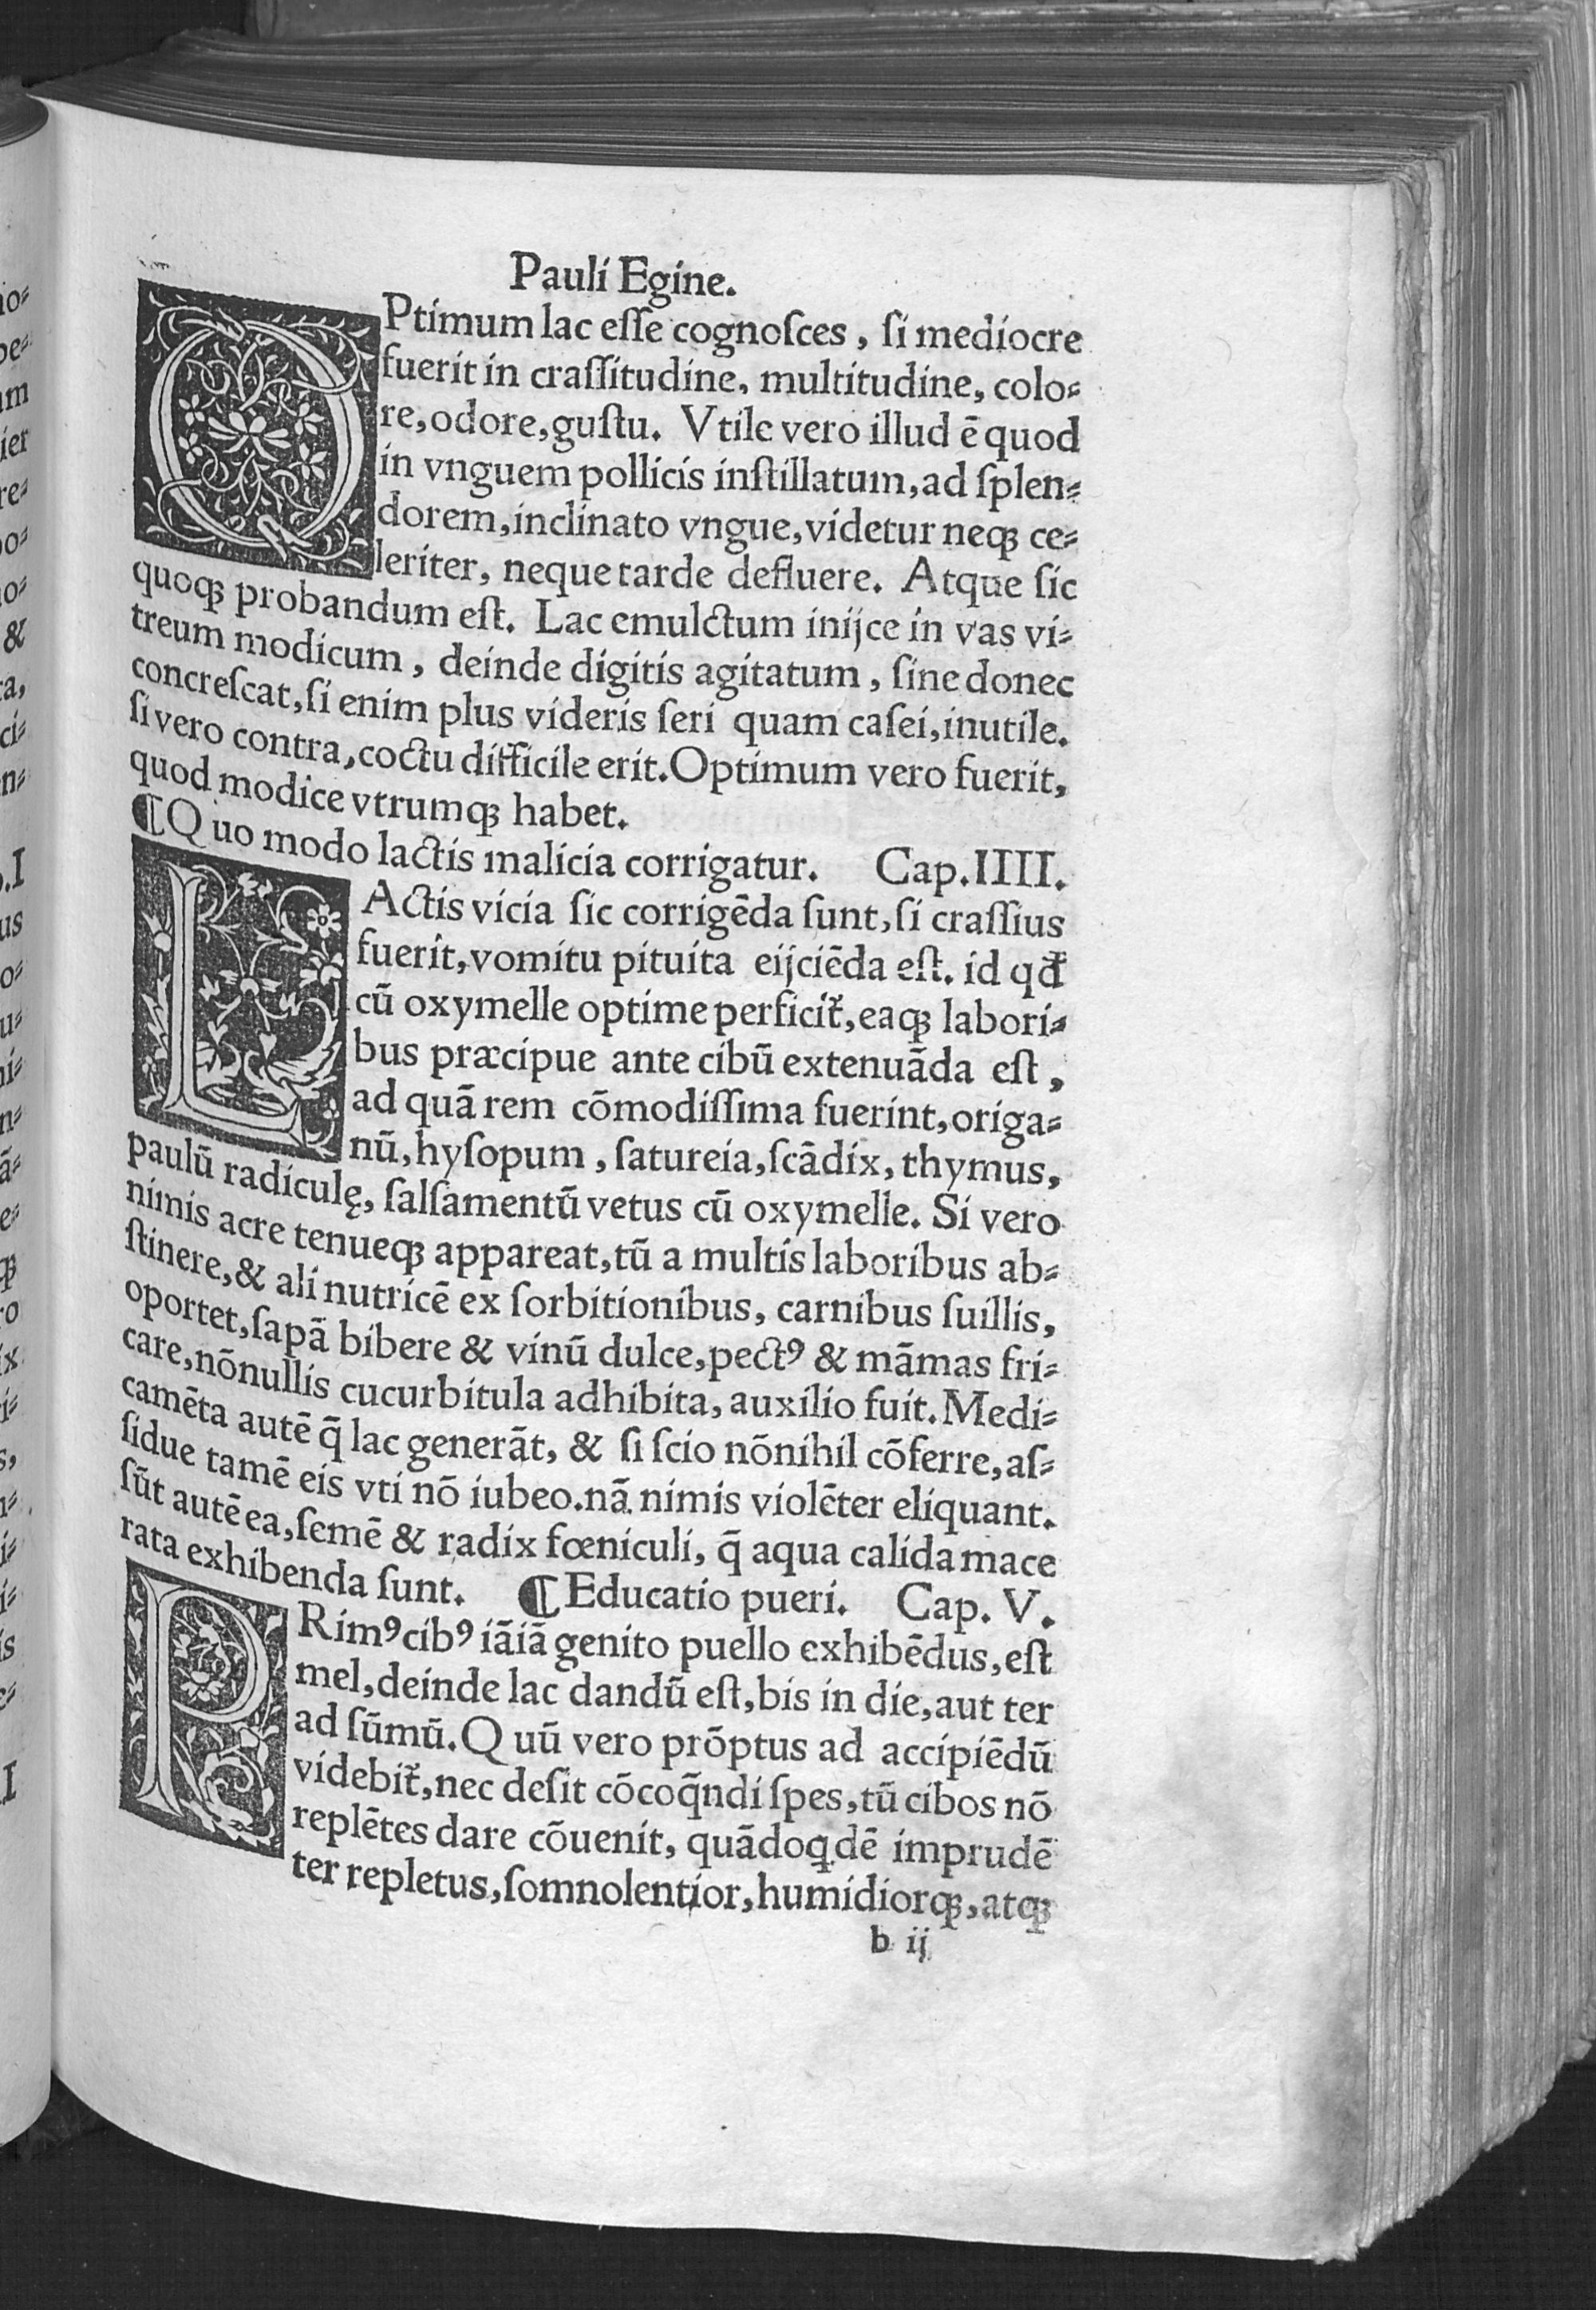 Pauli Egine.
OPtimum lac eſſe cognoſces, ſi mediocre
fuerit in craſſitudine, multitudine, colo⸗
re, odore, guſtu. Vtile vero illud ē quod
in vnguem pollicis inſtillatum, ad ſplen⸗
dorem, inclinato vngue, videtur neqꝫ ce⸗
leriter, neque tarde defluere. Atque ſic
quoqꝫ probandum eſt. Lac emulctum inijce in vas vi⸗
treum modicum, deinde digitis agitatum, ſine donec
concreſcat, ſi enim plus videris ſeri quam caſei, inutile.
ſi vero contra, coctu difficile erit. Optimum vero fuerit,
quod modice vtrumqꝫ habet.
¶Quo modo lactis malicia corrigatur. Cap.IIII.
LActis vicia ſic corrigēda ſunt, ſi craſſius
fuerit, vomitu pituita eijciēda eſt. id qđ
cū oxymelle optime perficit᷑, eaqꝫ labori⸗
bus præcipue ante cibū extenuāda eſt,
ad quā rem cōmodiſſima fuerint, origa⸗
nū, hyſopum, ſatureia, ſcādix, thymus,
paulū radiculę, ſalſamentū vetus cū oxymelle. Si vero
nimis acre tenueqꝫ appareat, tū a multis laboribus ab⸗
ſtinere, & ali nutricē ex ſorbitionibus, carnibus ſuillis,
oportet, ſapā bibere & vinū dulce, pectꝰ & māmas fri⸗
care, nōnullis cucurbitula adhibita, auxilio fuit. Medi⸗
camēta autē q̄ lac generāt, & ſi ſcio nōnihil cōferre, aſ⸗
ſidue tamē eis vti nō iubeo. nā nimis violēter eliquant.
ſūt autē ea, ſemē & radix fœniculi, q̄ aqua calida mace
rata exhibenda ſunt. ¶Educatio pueri. Cap. V.
PRimꝰ cibꝰ iāiā genito puello exhibēdus, eſt
mel, deinde lac dandū eſt, bis in die, aut ter
ad ſūmū. Quū vero prōptus ad accipiēdū
videbit᷑, nec deſit cōcoq̄ndi ſpes, tū cibos nō
replētes dare cōuenit, quādoq̇dē imprudē
ter repletus, ſomnolentior, humidiorqꝫ, atqꝫ
b ij